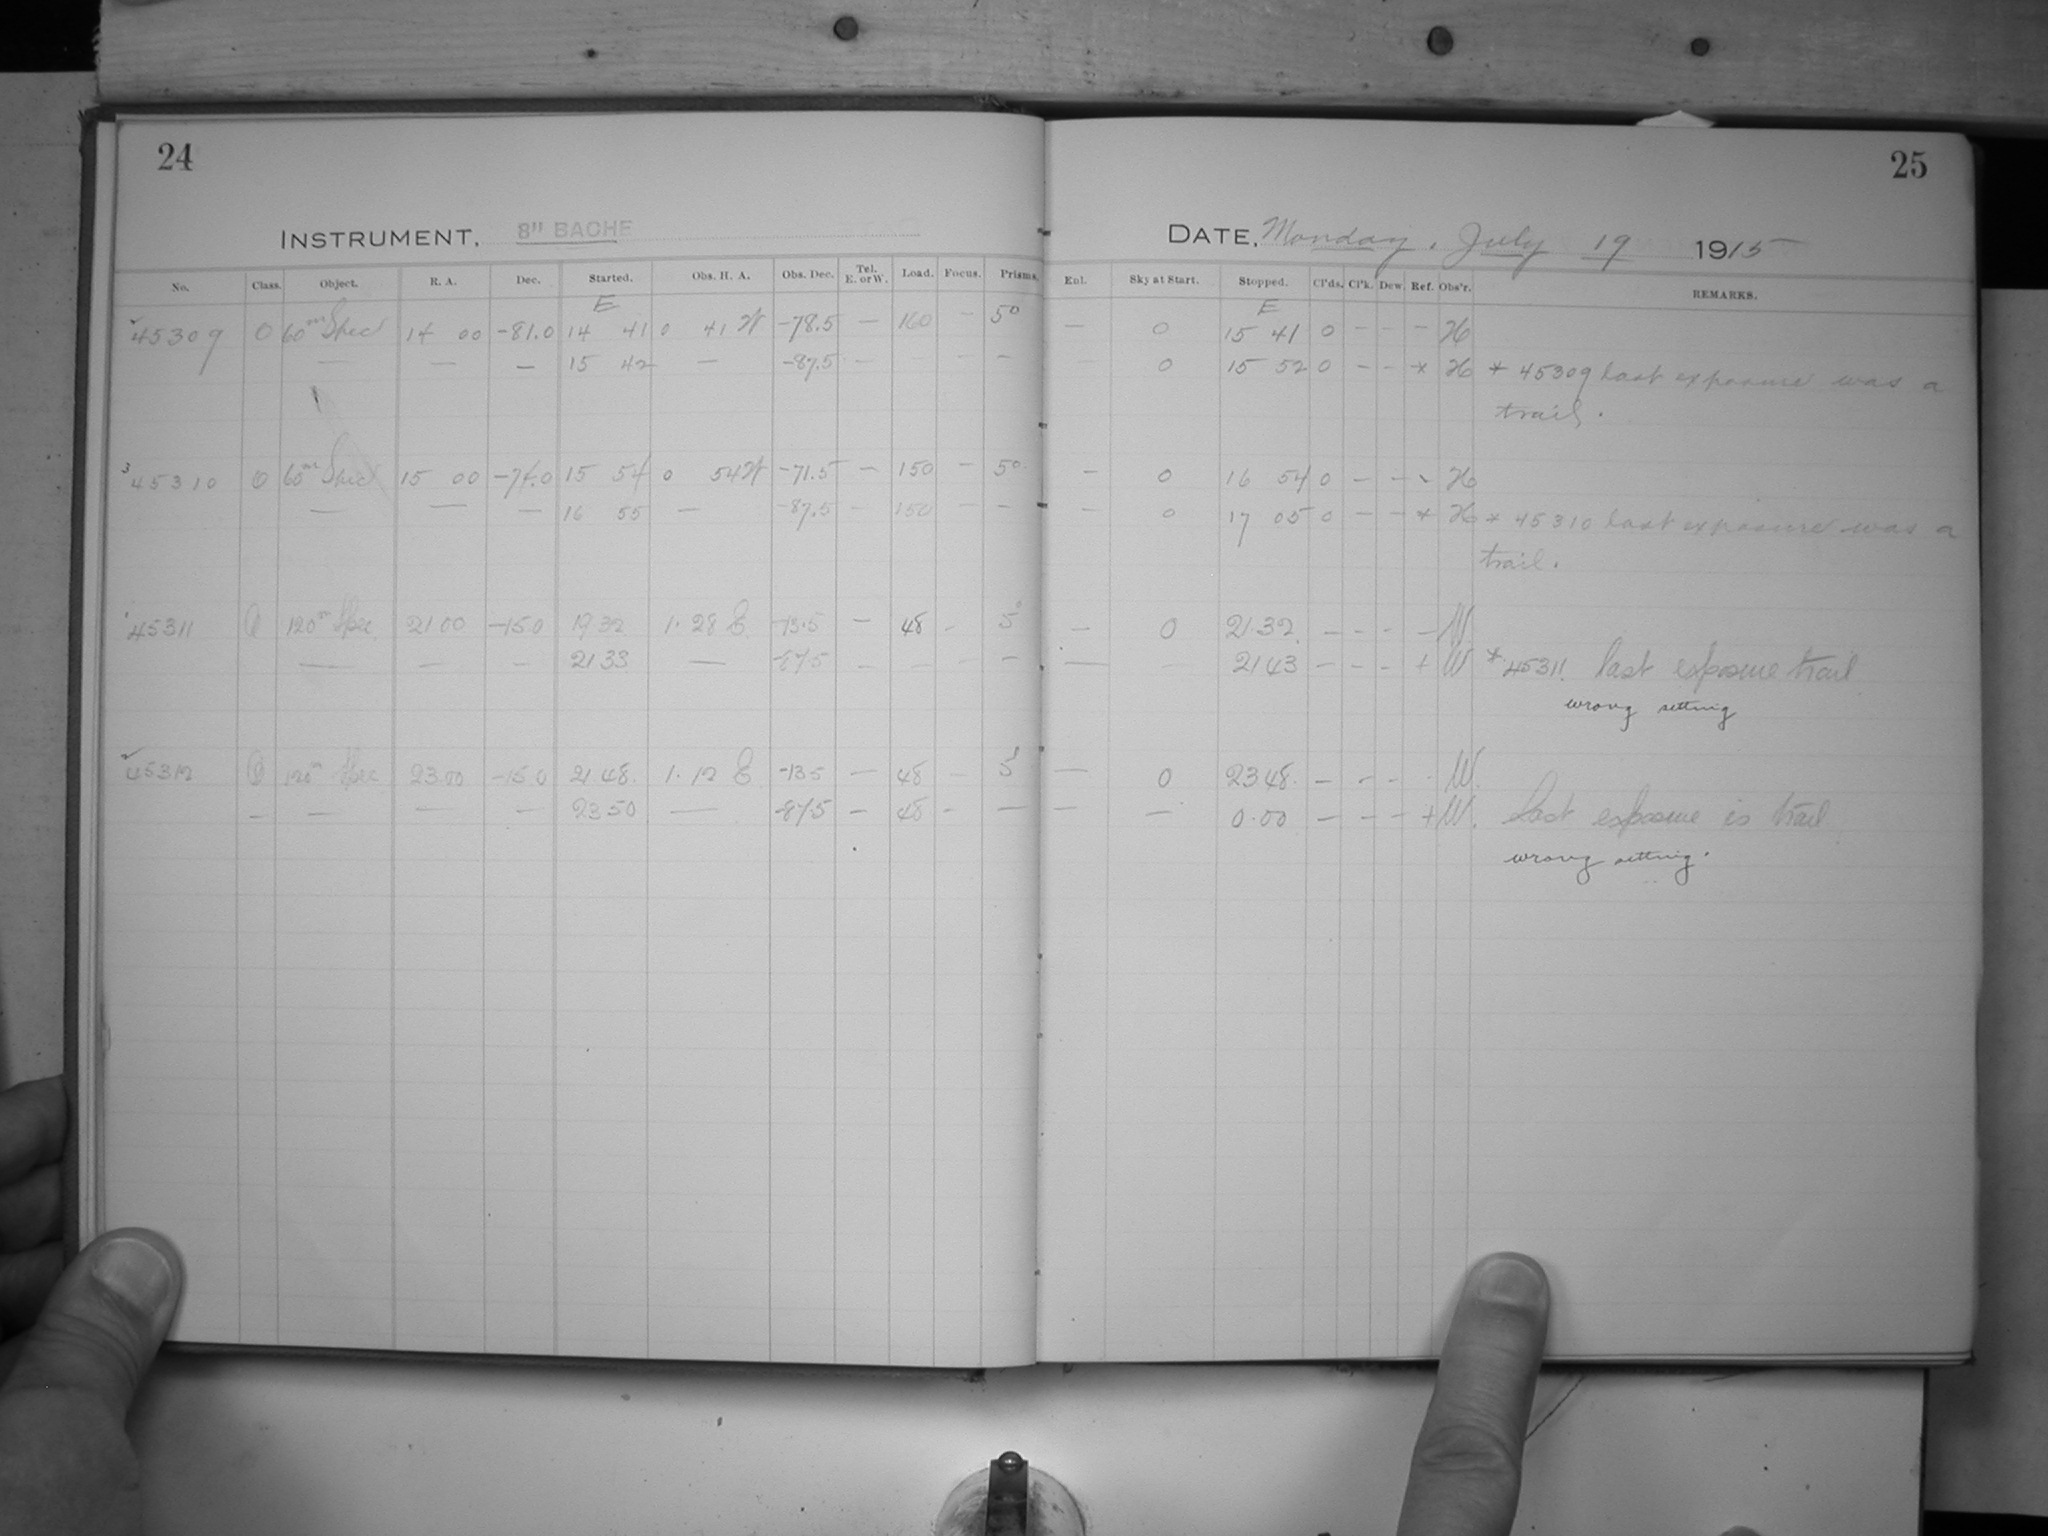 24
25
INSTRUMENT, 8" BACHE
DATE, Monday, July 19 1915
No. Class. Object. R. A. Dec. Started. Obs. H. A. Obs. Dec. Tel. E. or W. Load. Focus. Prisms. Enl. Sky at Start. Stopped. Cl'ds. Cl'k. Dew. Ref. Obs'r. REMARKS.
E E
45309 O 60m Spec 14 00 -81.0 14 41 0 41 W -78.5 — 160 - 5° — 0 15 41 0 - - - H
— — — 15 42 — -87.5 — - - - 0 15 52 0 - - * H * 45309 last exposure was a
trail.
3 45310 O 60m Spec 15 00 -74.0 15 54 0 54 W -71.5 — 150 - 5° — 0 16 54 0 - - - H
— — — 16 55 — -87.5 — 150 - - — 0 17 05 0 - - * H * 45310 last exposure was a
trail.
45311 O 120m Spec 21 00 -15.0 19 32 1.28 E -13.5 — 48 - 5° — 0 21.32 - - - - W
— — — 21 33 — -87.5 — - - - — - 21 43 - - - + W * 45311 last exposure trail
wrong setting
45312 O 120m Spec 23.00 -15.0 21 48. 1.12 E -13.5 — 48 - 5° — 0 23 48. - - - - W.
— — — — 23 50 — -87.5 — 48 - — — — 0.00 - - - + W. Last exposure is trail
wrong setting.